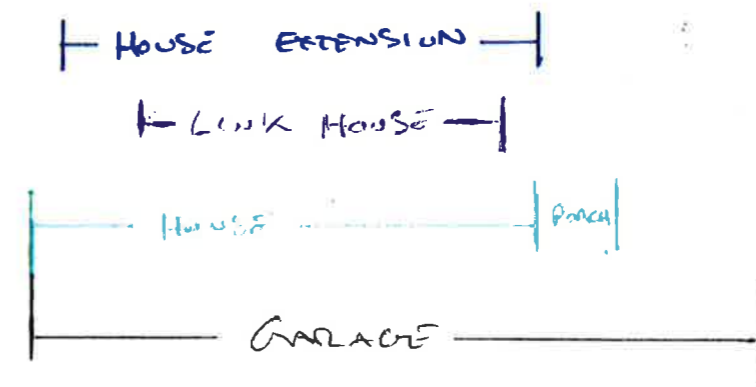 HOUSE EXTENSION
LINK HOUSE
HOUSE PORCH
GARAGE